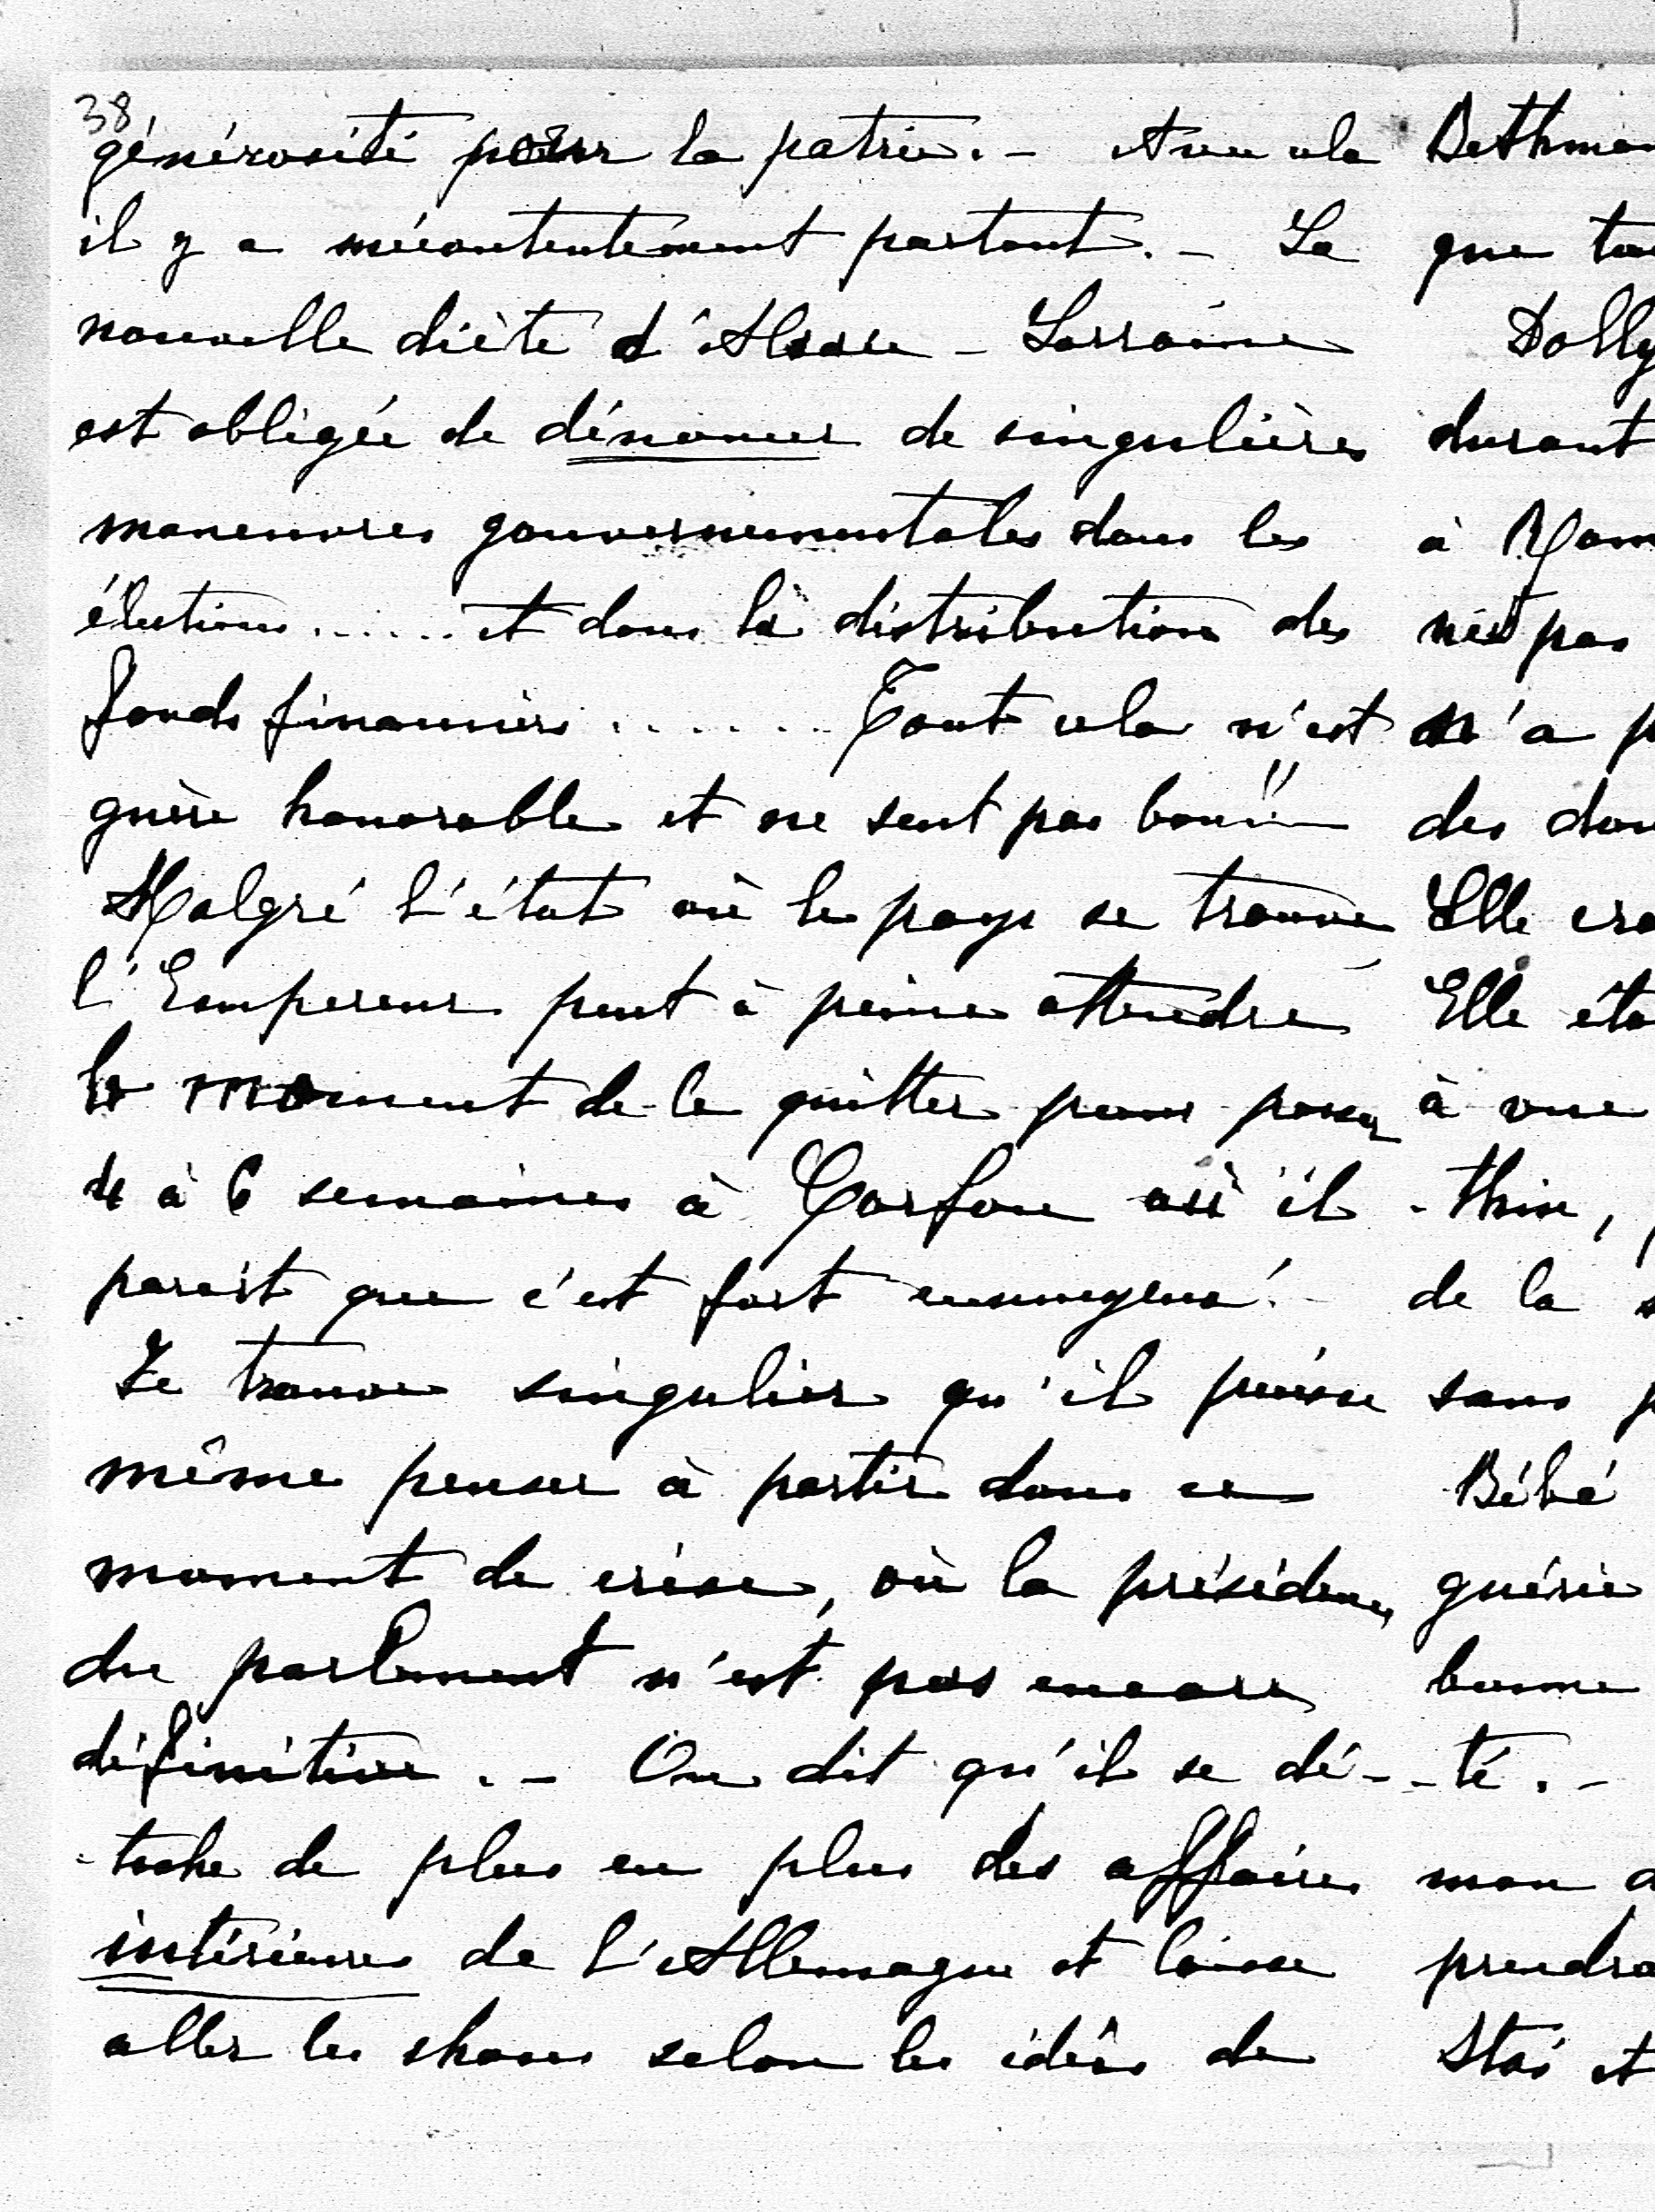 38
générosité pour la patrie. - Avec cela
il y a mécontentement partout. - La
nouvelle diète d'Alsace - Lorraine
est obligée de dénoncer de singulières
manœuvres gouvernementales dans les
élections...... et dans la distribution des
fonds financiers ...... Tout cela n'est
guère honorable et ne sent pas bon!!
Malgré l'état où le pays se trouve
l'Empereur peut à peine attendre
le moment de le quitter pour passer
4 à 6 semaines à Corfou où il
parait que c'est fort ennuyeux! -
Je trouve singulier qu'il puisse
même penser à partir dans ce
moment de crise, où la présidence
du parlement n'est pas encore
définitive. - On dit qu'il se dé-
-tache de plus en plus des affaires
intérieures de l'Allemagne et laisse
aller les choses selon les idées de
Bethman
que
Dolly
durant
à
n'est pas
n'a
des
Elle
Elle
à une
-thin,
de la
sans
Bébé
guérie
bonne
-té. -
mon
prendra
et